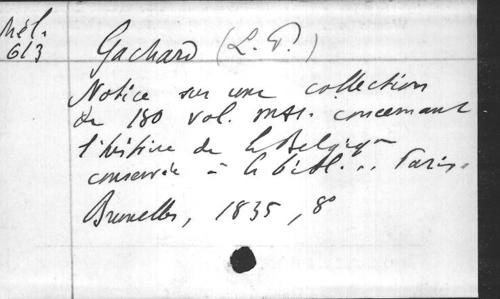 Mél.
613
Gachard (L. P.)
Notice sur une collection
de 180 vol. mss. concernant
l'histoire de la Belgique
conservée à la bibl... Paris.
Bruxelles, 1835, 8°